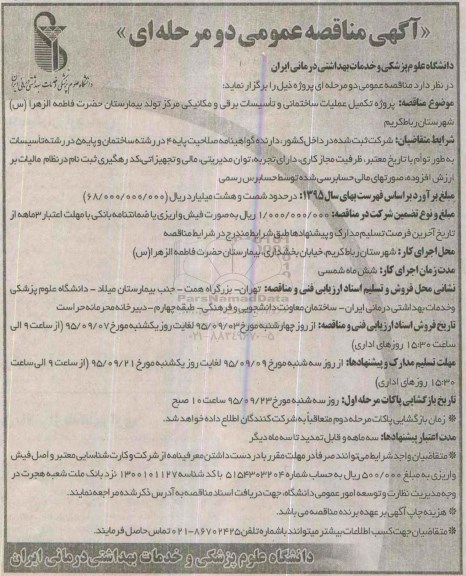 «آگهی مناقصه عمومی دو مرحله ای»
دانشگاه علوم پزشکی و خدمات بهداشتی درمانی ایران
دانشگاه علوم پزشکی و خدمات بهداشتی درمانی ایران
در نظر دارد مناقصه عمومی دو مرحله ای پروژه ذیل را برگزار نماید:
موضوع مناقصه: پروژه تکمیل عملیات ساختمانی و تأسیسات برقی و مکانیکی مرکز تولد بیمارستان حضرت فاطمه الزهرا (س)
شهرستان رباط کریم
شرایط متقاضیان: شرکت ثبت شده در داخل کشور، دارنده گواهینامه صلاحیت پایه ۴ در رشته ساختمان و پایه ۵ در رشته تأسیسات
به طور توأم با تاریخ معتبر، ظرفیت مجاز کاری، دارای تجربه، توان مدیریتی مالی و تجهیزاتی، کد رهگیری ثبت نام در نظام مالیات بر
ارزش افزوده، صورتهای مالی حسابرسی شده توسط حسابرس رسمی
مبلغ برآورد بر اساس فهرست بهای سال ۱۳۹۵: در حدود شصت و هشت میلیارد ریال (۶۸/۰۰۰/۰۰۰/۰۰۰)
مبلغ و نوع تضمین شرکت در مناقصه: ۱/۰۰۰/۰۰۰/۰۰۰ ریال به صورت فیش واریزی یا ضمانتنامه بانکی با مهلت اعتبار ۳ ماهه از
تاریخ آخرین فرصت تسلیم مدارک و پیشنهادها طبق شرایط مندرج در شرایط مناقصه
محل اجرای کار: شهرستان رباط کریم، خیابان بخشداری، بیمارستان حضرت فاطمه الزهرا(س)
مدت زمان اجرای کار: شش ماه شمسی
نشانی محل فروش و تسلیم اسناد ارزیابی فنی و مناقصه: تهران- بزرگراه همت - جنب بیمارستان میلاد - دانشگاه علوم پزشکی
وخدمات بهداشتی درمانی ایران - ساختمان معاونت دانشجویی و فرهنگی- طبقه چهارم - دبیرخانه محرمانه حراست
تاریخ فروش اسناد ارزیابی فنی و مناقصه: از روز چهارشنبه مورخ ۹۵/۰۹/۰۳ لغایت روز یکشنبه مورخ ۹۵/۰۹/۰۷ (از ساعت ۹ الی
ساعت ۱۵:۳۰ روزهای اداری)
مهلت تسلیم مدارک و پیشنهادها: از روز سه شنبه مورخ ۹۵/۰۹/۰۹ لغایت روز یکشنبه مورخ ۹۵/۰۹/۲۱ (از ساعت ۹ الی ساعت
۱۵:۳۰ روزهای اداری)
تاریخ بازگشایی پاکات مرحله اول: روز سه شنبه مورخ ۹۵/۰۹/۲۳ ساعت ۱۰ صبح
* زمان بازگشایی پاکات مرحله دوم متعاقباً به شرکت کنندگان اطلاع داده خواهد شد.
مدت اعتبار پیشنهادها: سه ماهه و قابل تمدید تا سه ماه دیگر
* متقاضیان واجد شرایط می توانند صرفاً در مهلت مقرر با در دست داشتن معرفینامه از شرکت و کارت شناسایی معتبر و اصل فیش
واریزی به مبلغ ۵۰۰/۰۰۰ ریال به حساب شماره ۵۱۵۴۳۰۳۲۰۴ با کد شناسه ۱۳۰۰۱۰۱۱۲۷ نزد بانک ملت شعبه هجرت در
وجه مدیریت نظارت و توسعه امور عمومی دانشگاه، جهت دریافت اسناد مناقصه به آدرس ذکر شده مراجعه نمایند.
* هزینه چاپ آگهی بر عهده برنده مناقصه می باشد.
* متقاضیان جهت کسب اطلاعات بیشتر میتوانند با شماره تلفن ۸۶۷۰۲۴۲۵-۰۲۱ تماس حاصل فرمایند.
دانشگاه علوم پزشکی و خدمات بهداشتی درمانی ایران
ParsNamadData
۰۲۱-۸۸۳۴۹۶۷۰-۵